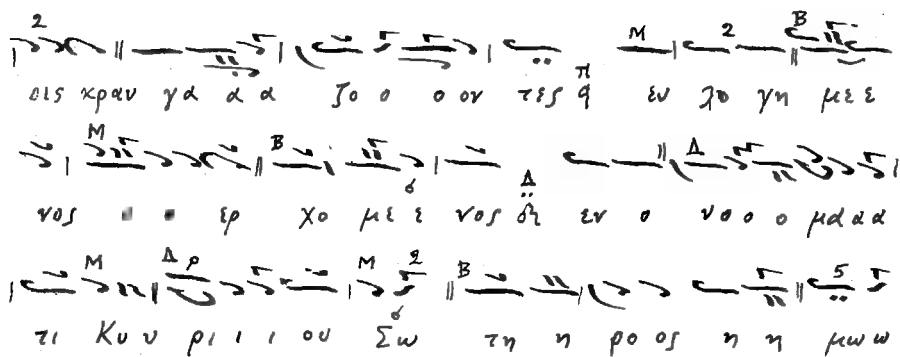 οις κραν γα α α ζο ο ο ον τες ευ λο γη με ε
νος ο ο ερ χο με ε νος εν ο νο ο ο μα α α
τι Κυ υ ρι ι ι ου Σω τη η ρο ος η η μω ω